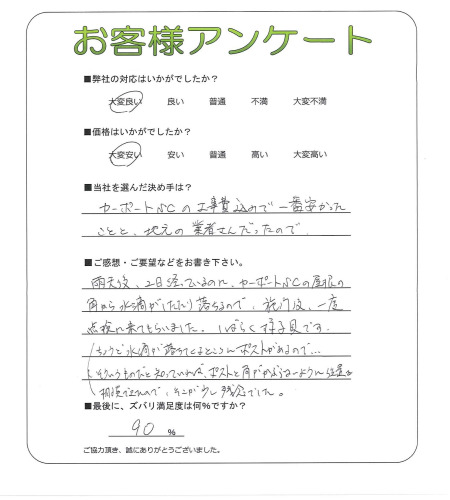 お客様アンケート
■弊社の対応はいかがでしたか？
大変良い 良い 普通 不満 大変不満
■価格はいかがでしたか？
大変安い 安い 普通 高い 大変高い
■当社を選んだ決め手は？
カーポートSCの工事費込みで一番安かった
ことと、地元の業者さんだったので
■ご感想・ご要望などをお書き下さい。
雨天後、2日経っているのに、カーポートSCの屋根の
角から水滴がしたたり落ちるので、施行後、一度
点検に来てもらいました。しばらく様子見です。
ちょうど水滴が落ちてくるところにポストがあるので…
そういうものだと知っていれば、ポストと角がかぶらないように位置を
相談できたので、そこが少し残念でした。
■最後に、ズバリ満足度は何％ですか？
90 ％
ご協力頂き、誠にありがとうございました。